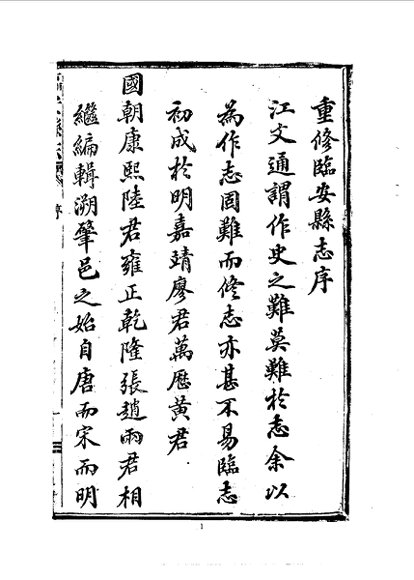 重修臨安縣志序
江文通謂作史之難莫難於志余以
為作志固難而修志亦甚不易臨志
初成於明嘉靖廖君萬歷黃君
國朝康熙陸君雍正乾隆張趙兩君相
繼編輯溯肇邑之始自唐而宋而明
序
1